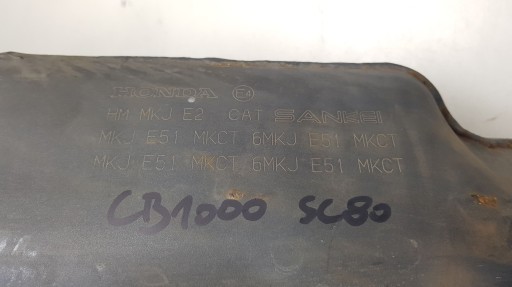 HONDA E4
HM MKJ E2 CAT SANKEI
MKJ E51 MKCT 6MKJ E51 MKCT
MKJ E51 MKCT 6MKJ E51 MKCT
CB1000 SC80